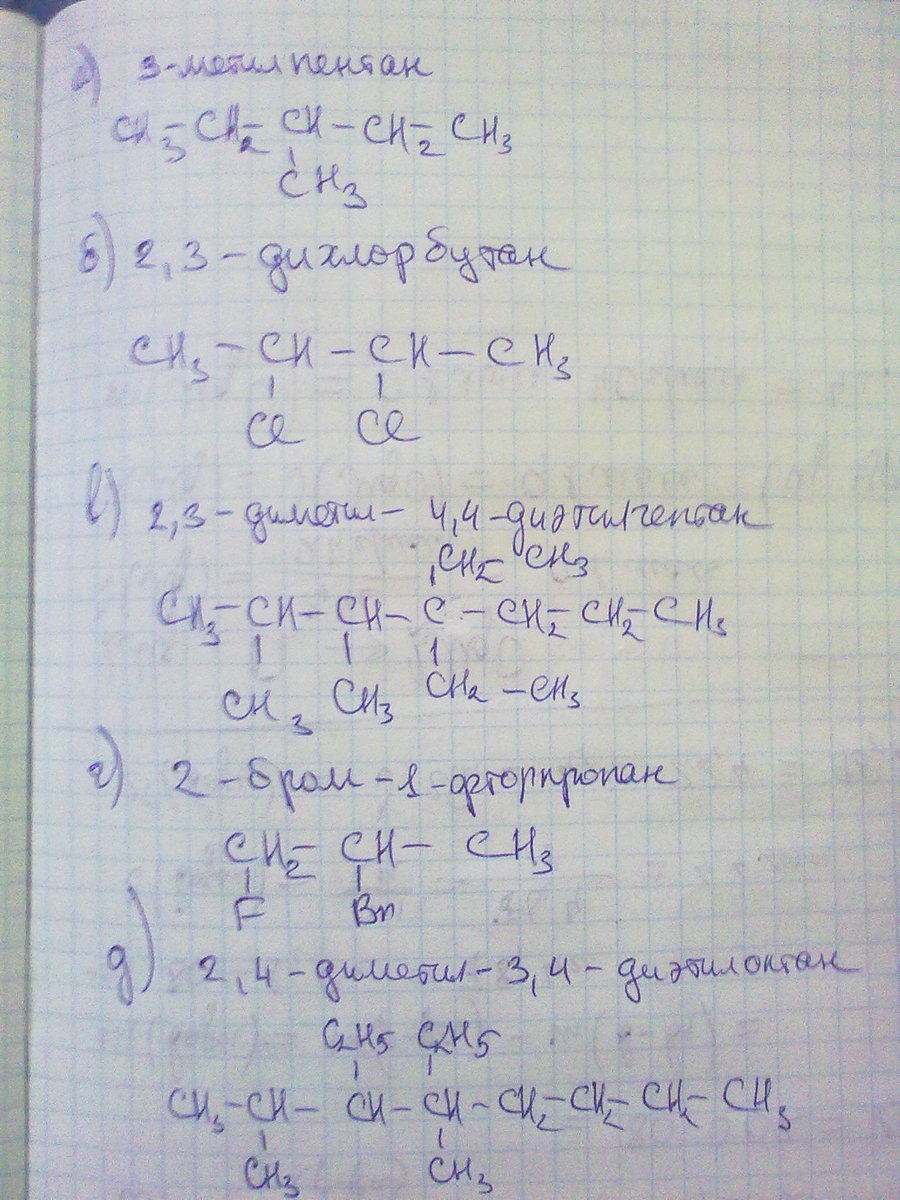 а) 3-метилпентан
CH3-CH2-CH-CH2-CH3
CH3
б) 2,3-дихлорбутан
CH3-CH-CH-CH3
Cl Cl
в) 2,3-диметил-4,4-диэтилгептан
CH2-CH3
CH3-CH-CH-C-CH2-CH2-CH3
CH3 CH3 CH2-CH3
г) 2-бром-1-фторпропан
CH2-CH-CH3
F Br
д) 2,4-диметил-3,4-диэтилоктан
C2H5 C2H5
CH3-CH-CH-CH-CH2-CH2-CH2-CH3
CH3 CH3